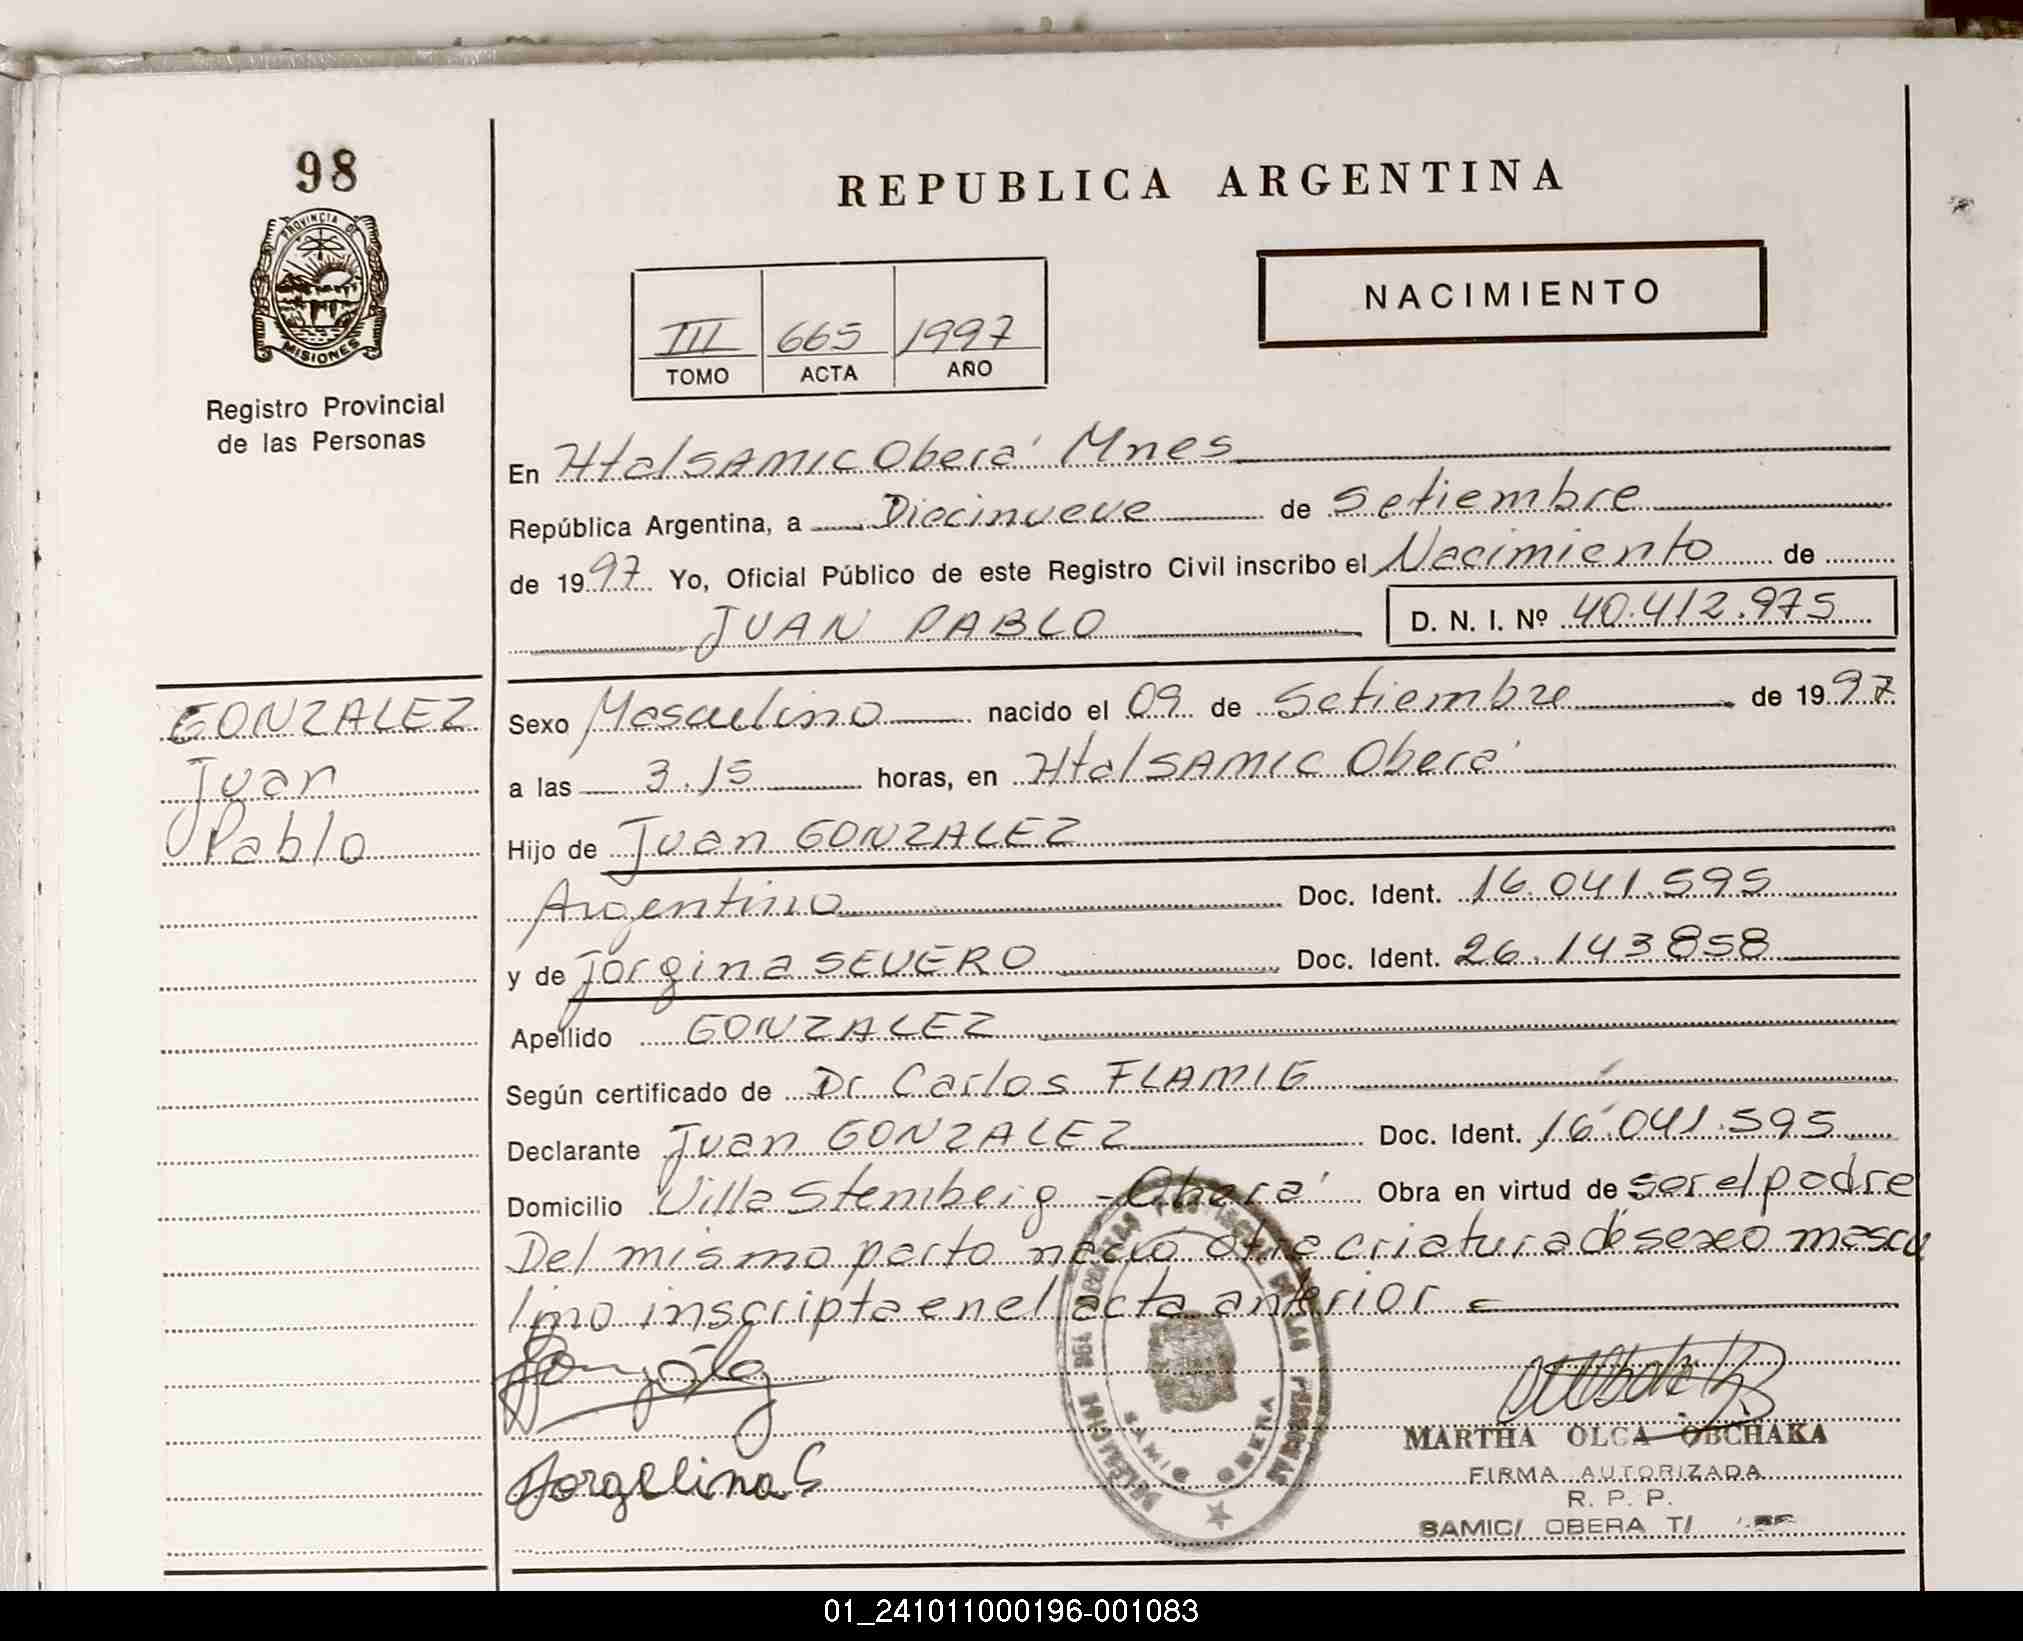 98
PROVINCIA DE
MISIONES
Registro Provincial
de las Personas
REPUBLICA ARGENTINA
NACIMIENTO
III 665 1997
TOMO ACTA AÑO
En Htal SAMIC Oberá Mnes
República Argentina, a Diecinueve de Setiembre
de 1997 Yo, Oficial Público de este Registro Civil inscribo el Nacimiento de
JUAN PABLO D. N. I. Nº 40.412.975
GONZALEZ
Juan
Pablo
Sexo Masculino nacido el 09 de Setiembre de 1997
a las 3.15 horas, en Htal SAMIC Oberá
Hijo de Juan GONZALEZ
Argentino Doc. Ident. 16.041.595
y de Jorgina SEVERO Doc. Ident. 26.143858
Apellido GONZALEZ
Según certificado de Dr Carlos FLAMIG
Declarante Juan GONZALEZ Doc. Ident. 16.041.595
Domicilio Villa Stemberg - Oberá Obra en virtud de ser el padre
Del mismo parto nació otra criatura de sexo mascu
lino inscripta en el acta anterior =
Jorgelina S
MARTHA OLGA OBCHAKA
FIRMA AUTORIZADA
R. P. P.
SAMIC/ OBERA T/
DE LAS PERSONAS
SAMIC OBERA
01_241011000196-001083